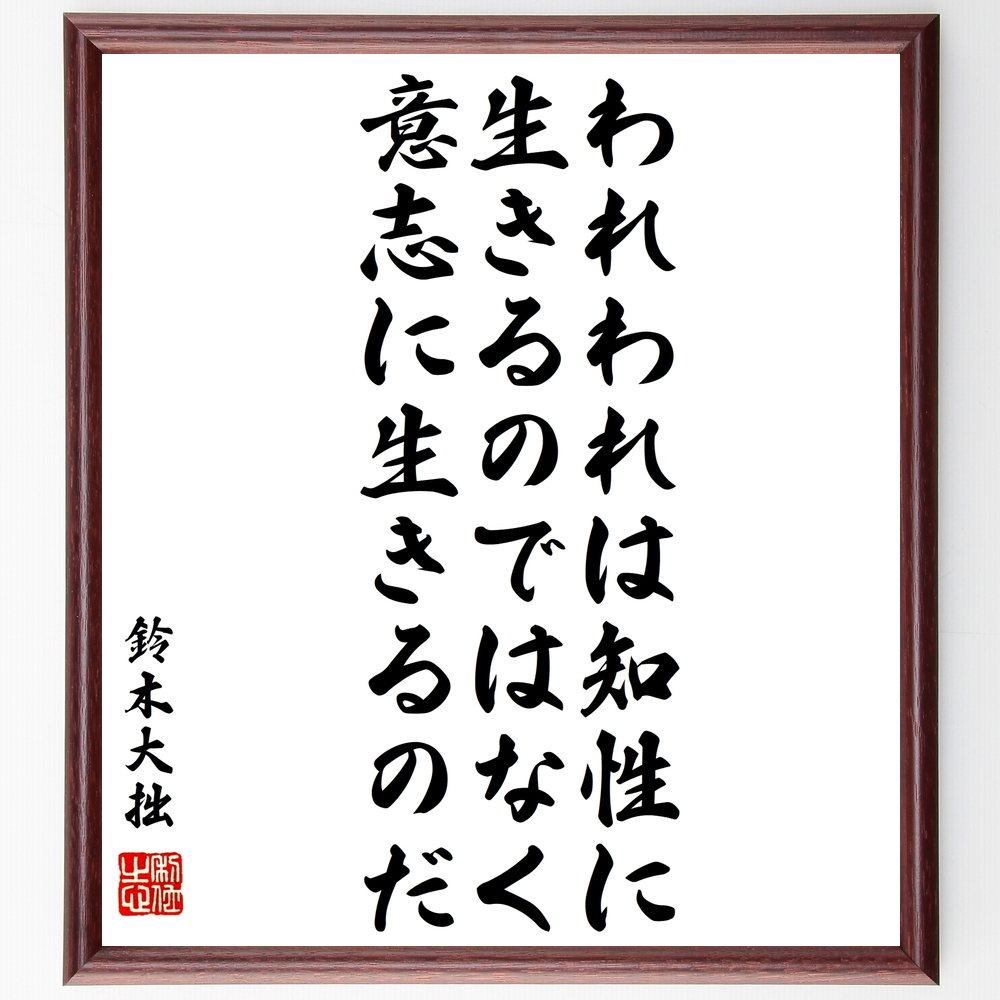 われわれは知性に
生きるのではなく
意志に生きるのだ
鈴木大拙